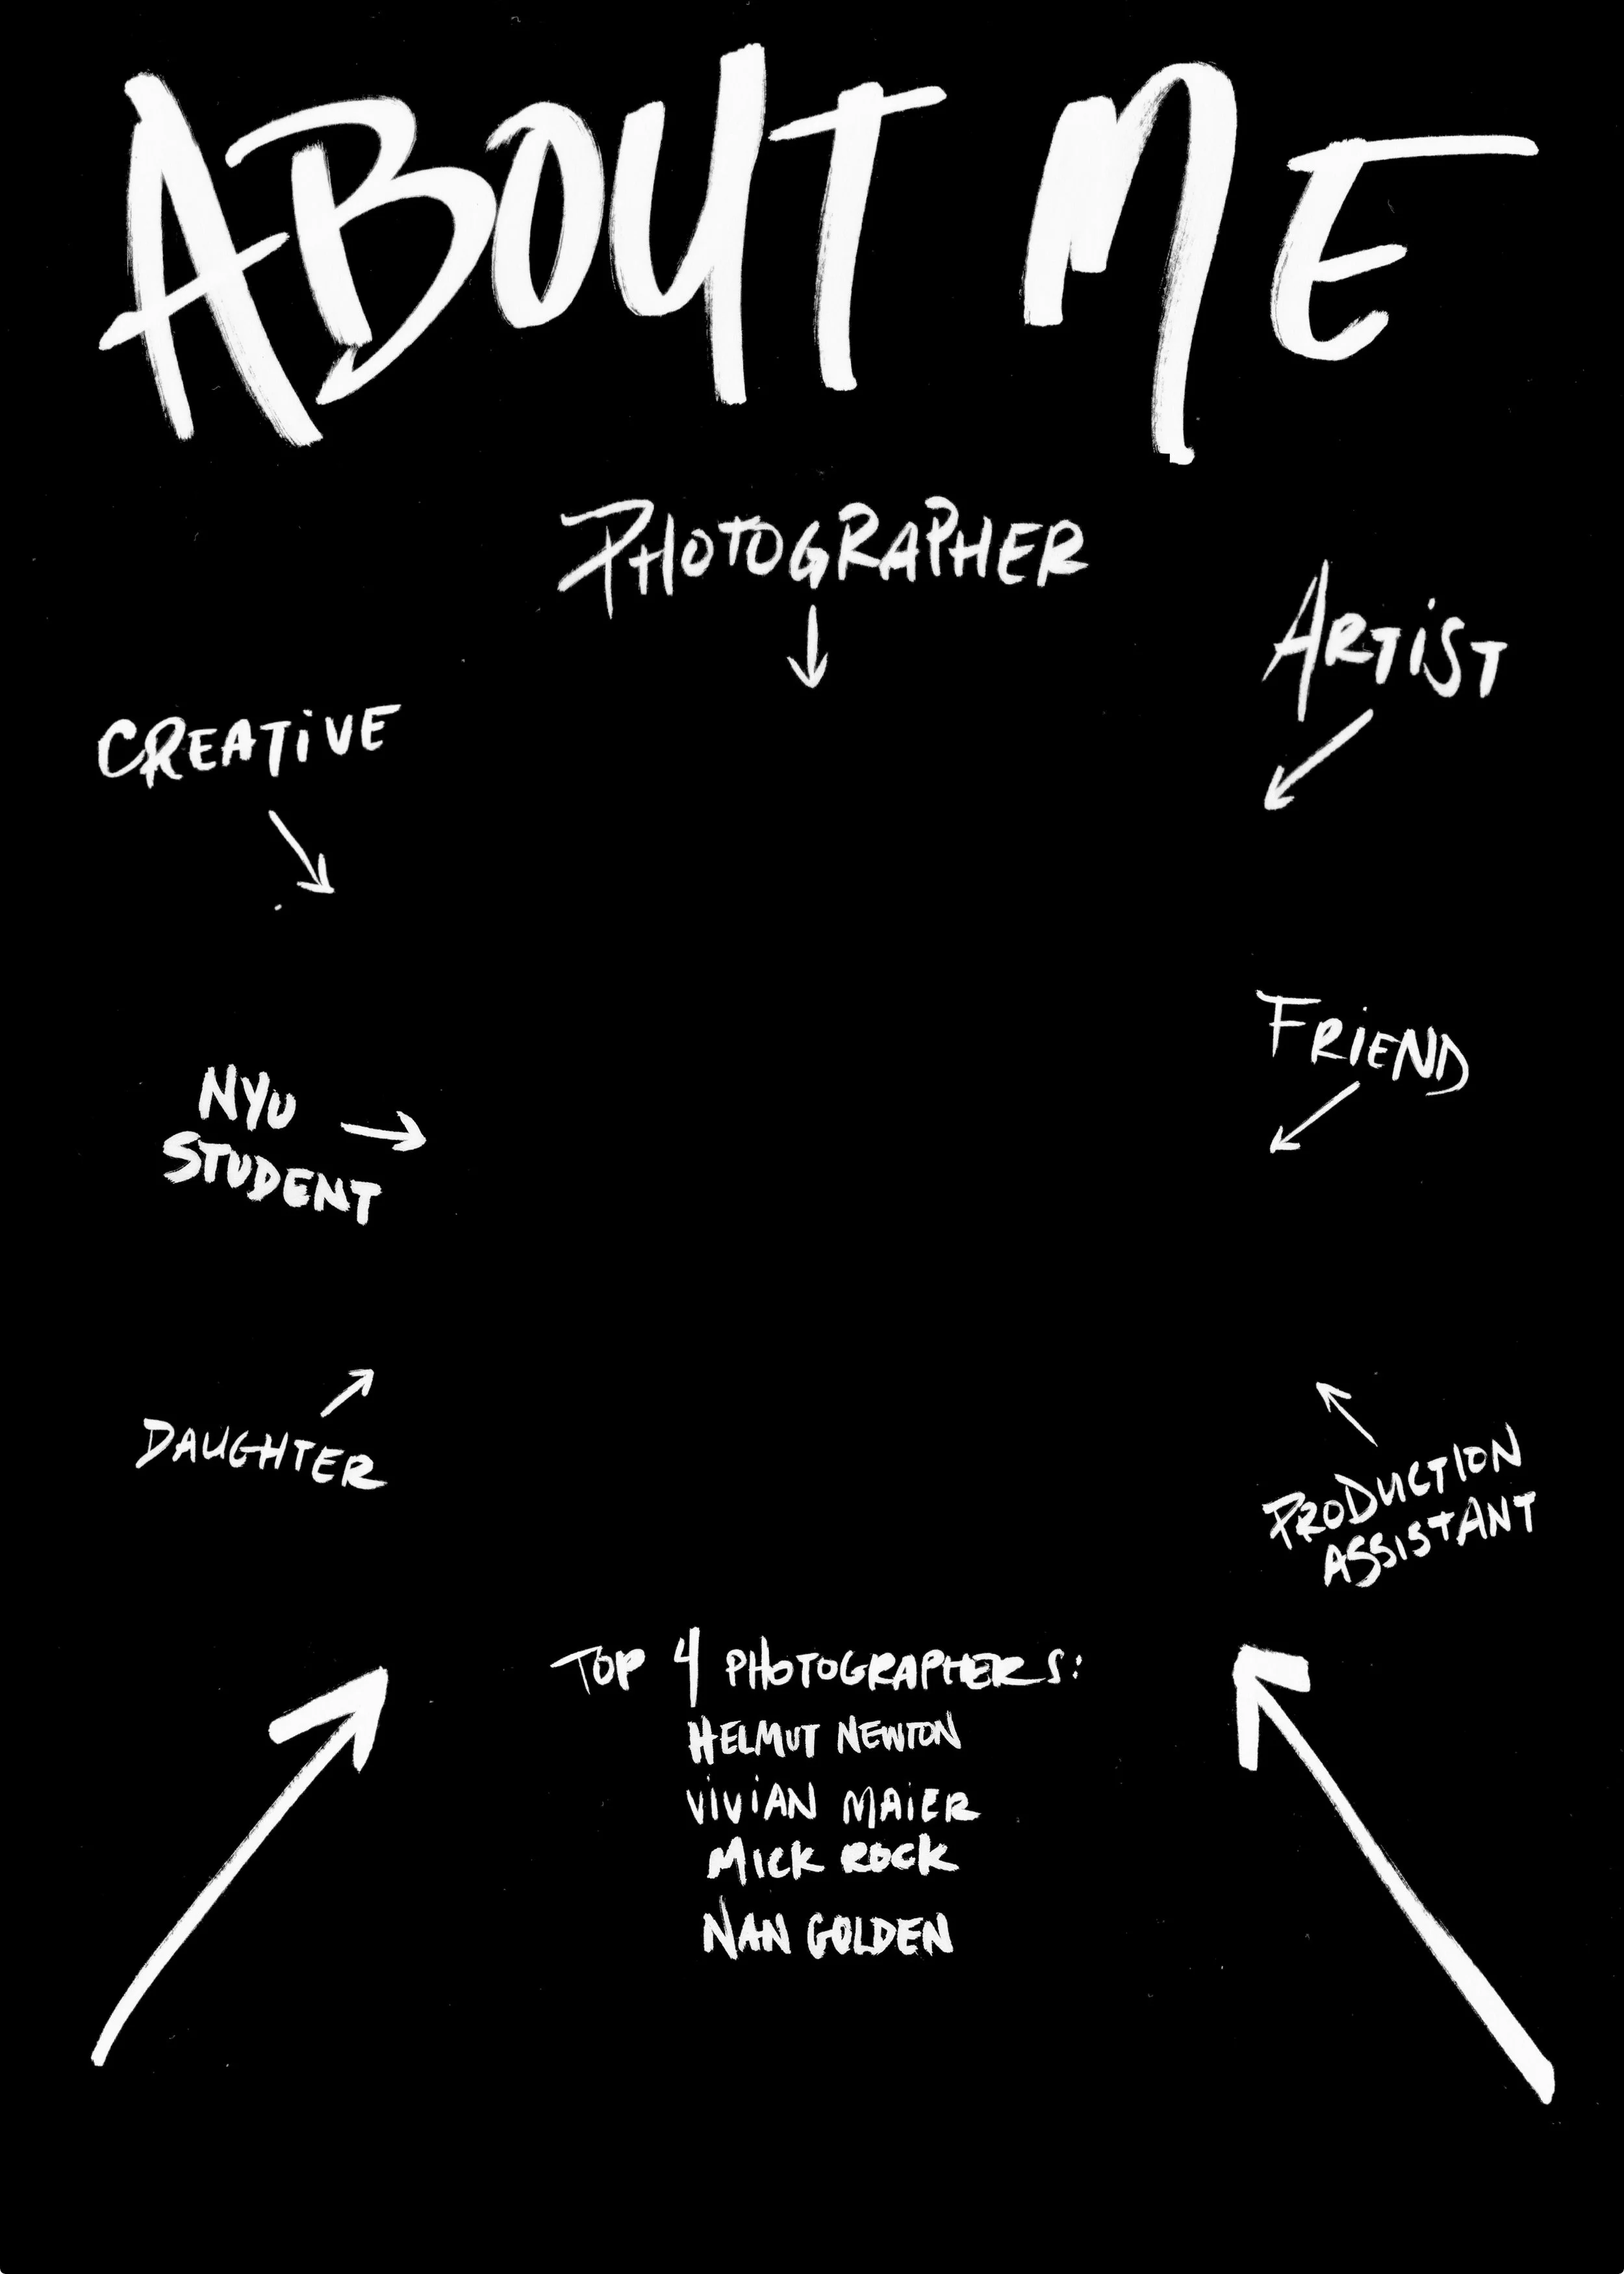 ABOUT ME
PHOTOGRAPHER
ARTIST
CREATIVE
FRIEND
NYU
STUDENT
DAUGHTER
PRODUCTION
ASSISTANT
TOP 4 PHOTOGRAPHERS:
HELMUT NEWTON
VIVIAN MAIER
MICK ROCK
NAN GOLDEN